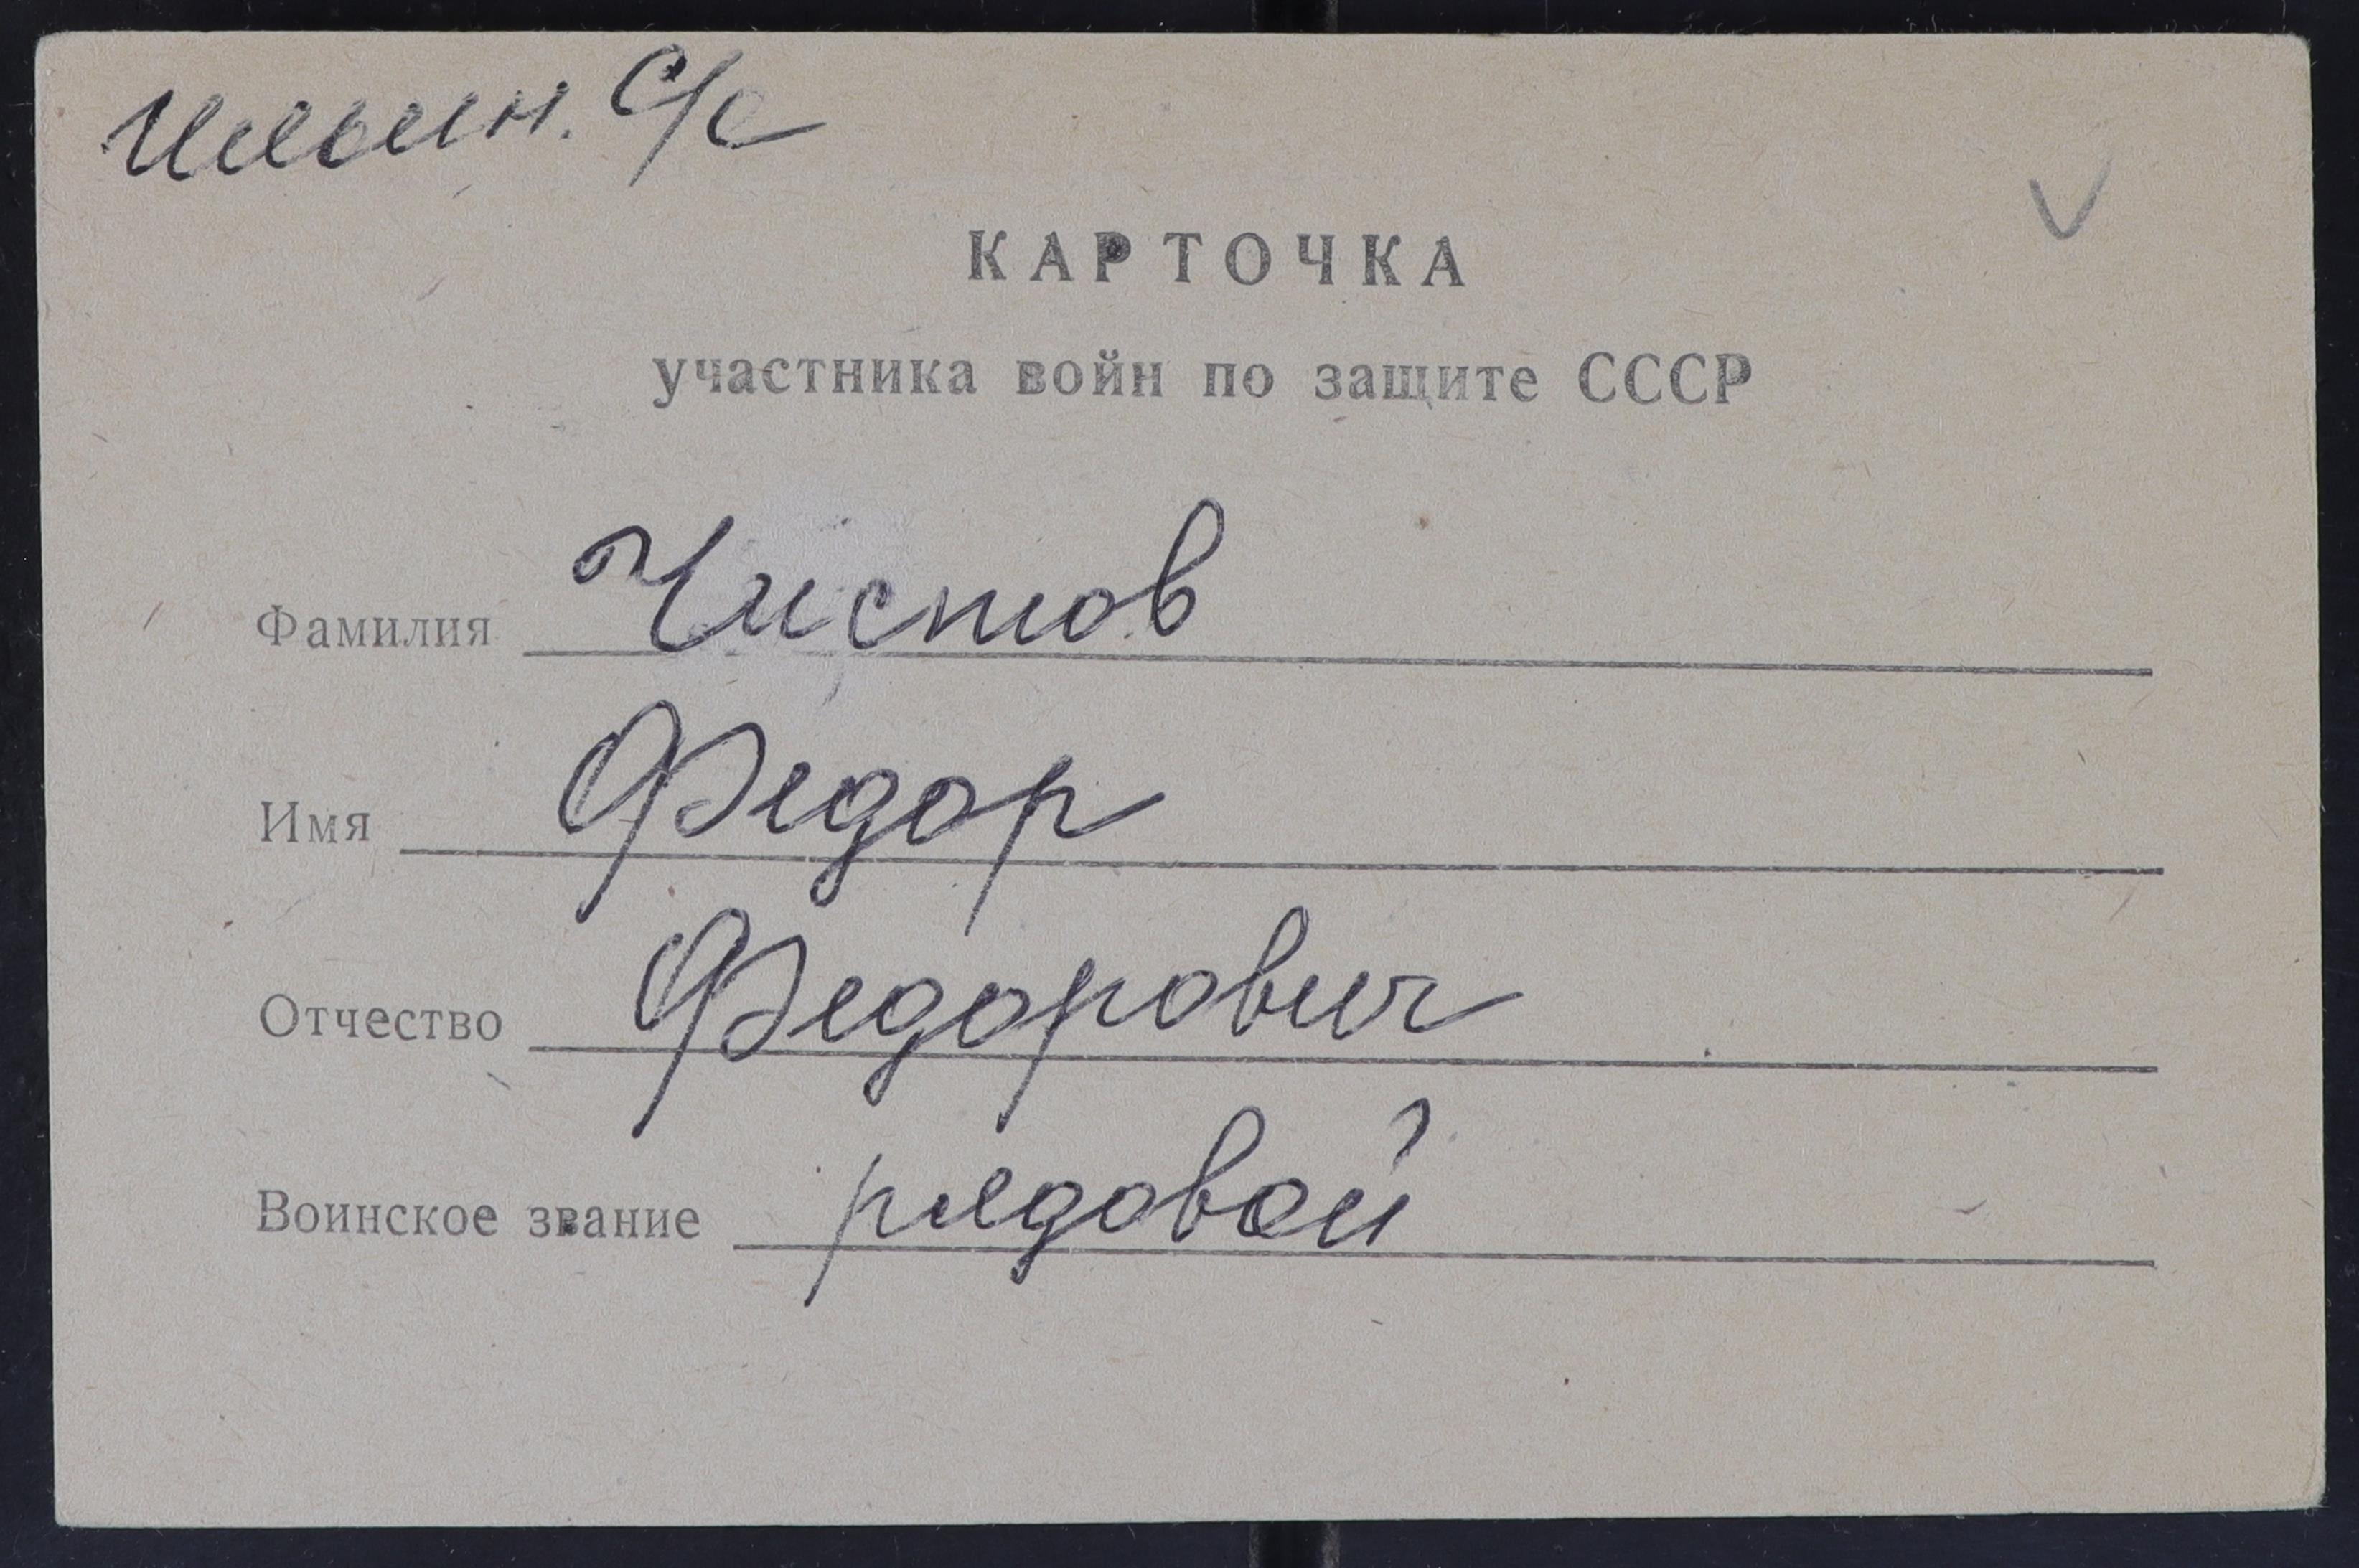 Ильин. С/с
КАРТОЧКА
участника войн по защите СССР
Фамилия Чистов
Имя Федор
Отчество Федорович
Воинское звание рядовой